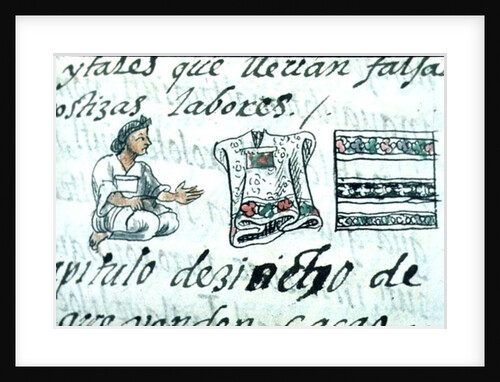 y tales que lleuan falsa
ostizas labores.
apitulo dezinueho de
que venden Cacao